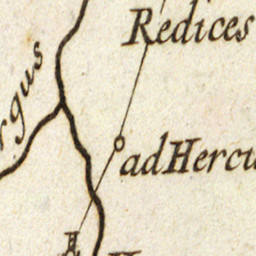 Redices
rgus
ad Hercu